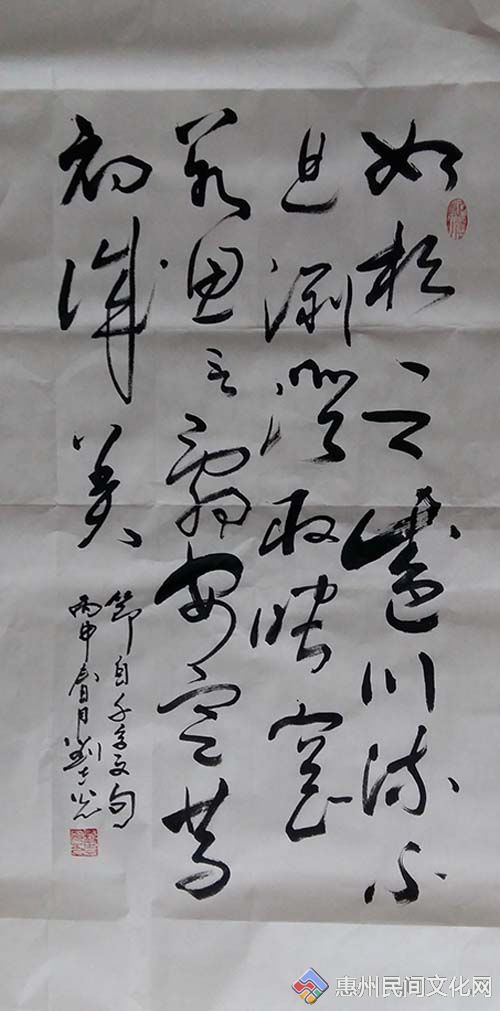 如松之盛川流不
息渊澄取映容止
若思言辭安定笃
初誠美
節自千字文句
丙申春月刘士
惠州民间文化网